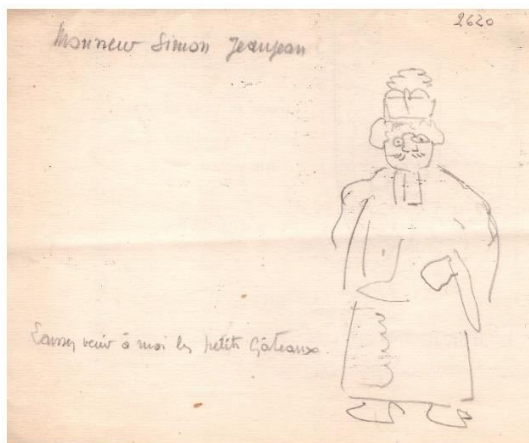 2620
Monsieur Simon Jeanjean
Laissez venir à moi les petits Gâteaux.